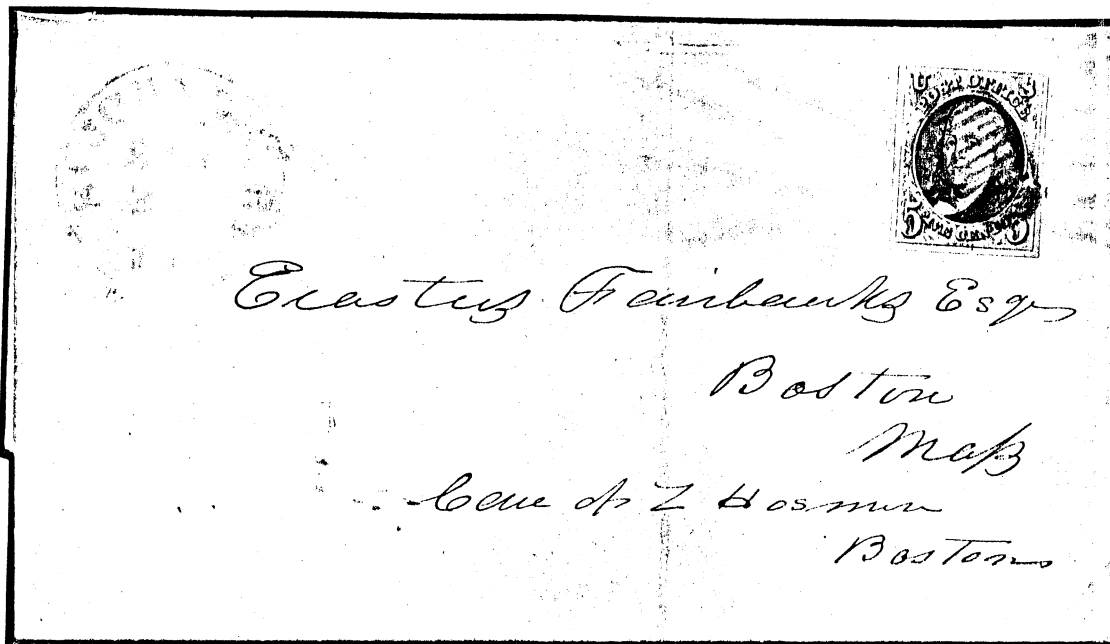 POST OFFICE
FIVE CENTS
Erastus Fairbanks Esqr
Boston
Maſs
Care of Z Hosmer
Boston